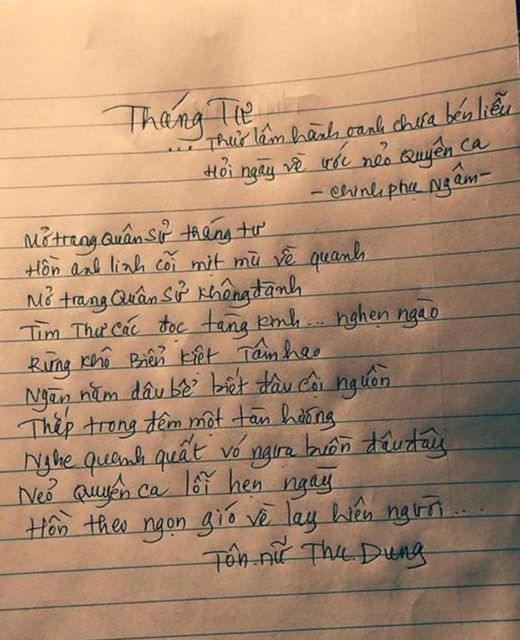 Tháng Tư
... Thuở lâm hành oanh chưa bén liễu
Hỏi ngày về ước nẻo Quyên ca
- chinh phụ Ngâm -
Mở trang Quân Sử tháng tư
Hồn anh linh cõi mịt mù về quanh
Mở trang Quân Sử không đành
Tìm Thư Các đọc tàng kinh... nghẹn ngào
Rừng khô Biển kiệt Tâm hao
Ngàn năm dâu bể biết đâu cội nguồn
Thắp trong đêm một tàn hương
Nghe quanh quất vó ngựa buồn đâu đây
Nẻo Quyên ca lỗi hẹn ngày
Hồn theo ngọn gió về lay hiên người...
Tôn nữ Thu Dung